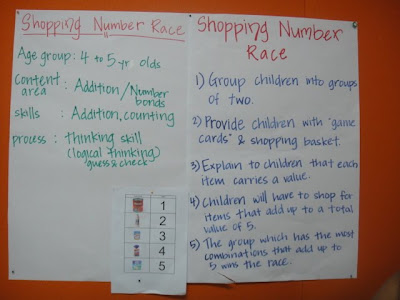 Shopping Number Race
Age group : 4 to 5 yr olds
content area : Addition/Number bonds
skills : Addition, counting
process : thinking skill
(logical thinking)
guess & check
1
2
3
4
5
Shopping Number
Race
1) Group children into groups
of two.
2) Provide children with "game
cards" & shopping basket.
3) Explain to children that each
item carries a value.
4) Children will have to shop for
items that add up to a total
value of 5.
5) The group which has the most
combinations that add up to
5 wins the race.